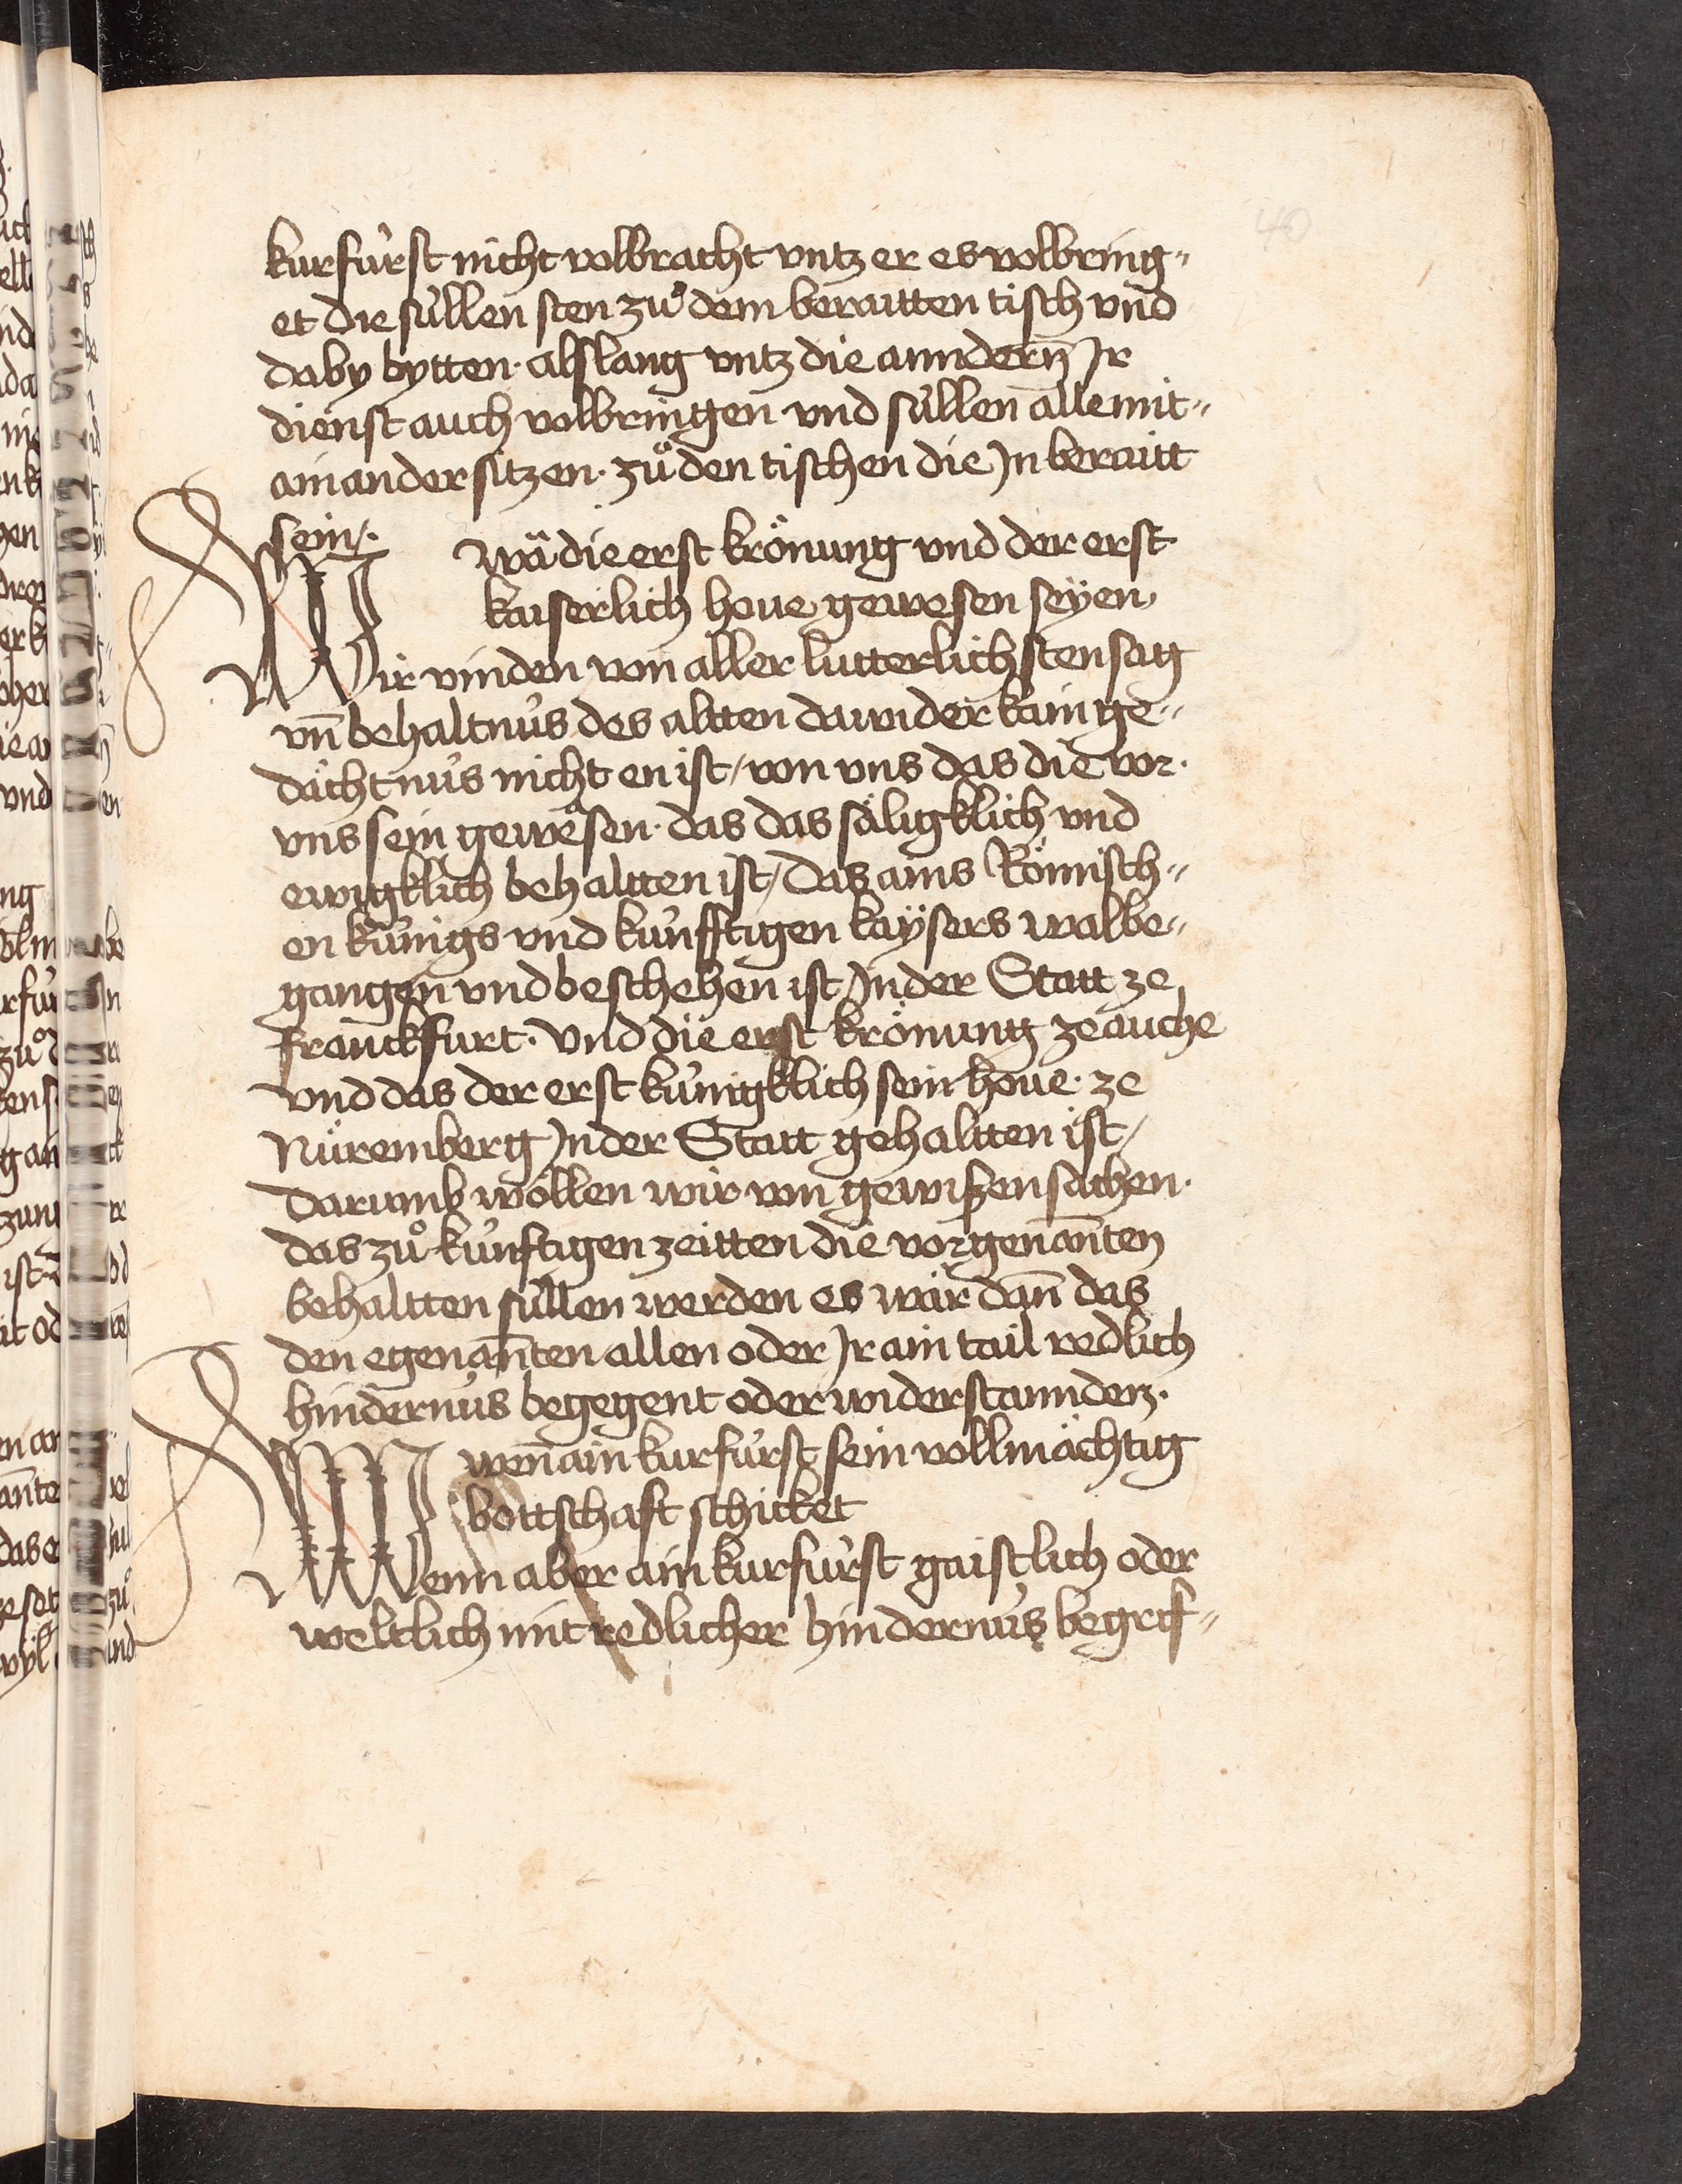 40
kurfúrst nicht volbracht vntz er es volbring„
et die súllen sten zuͦ dem beraitten tisch vnd
daby bytten· alslang vntz die anndern̄ Jr
dienst auch volbringen vnd súllen alle mit„
ainander sitzen· zuͦ den tischen die Jn berait
sein/·
wä die erst krönung vnd der erst
kaiserlich houe gewesen seÿen·
Wir vinden von aller lutterlichsten sag
vn̄ behaltnús des altten dawider kain ge„
dächtnús nicht en ist/ von vns das die vor·
vns sein gewesen· das das säligklich vnd
ewigklich behaltten ist/ das ains Römisch„
en kúnigs vnd kúnfftigen kaÿsers wal be„
gangen vnd beschehen ist Jn der Statt ze
franckfurt· vnd die erst krönung ze auche
vnd das der erst kúnigklich sein houe· ze
Nüremberg Jn der Statt gehaltten ist/
darumb wöllen wir von gewißen sachen·
das zuͦ kúnftigen zeitten die vorgenan̄ten
behaltten súllen werden es wär dan̄ das
den egenan̄ten allen oder Jr ain tail redlich
hindernús begegent oder widerstannden·
wen̄ ain kurfúrst sein vollmächtig
bottschaft schicket
Wenn aber ain kurfúrst gaistlich oder
weltlich mit redlicher hindernús begrif„